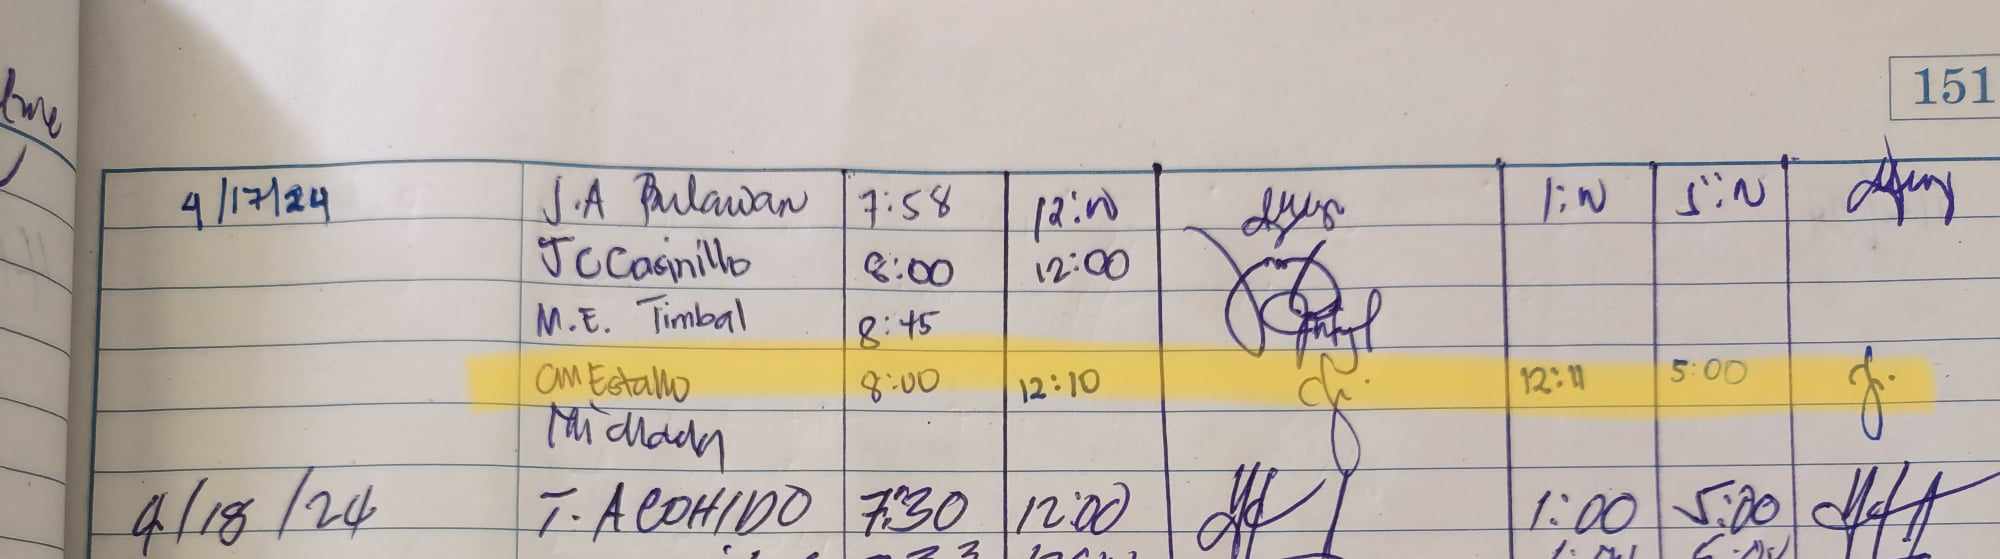 time
151
4/17/24 J.A Bulawan 7:58 12:N 1:N 5:N
JC Casinillo 8:00 12:00
M.E. Timbal 8:45
CM Estallo 8:00 12:10 12:11 5:00
4/18/24 T. ACOHIDO 7:30 12:00 1:00 5:00